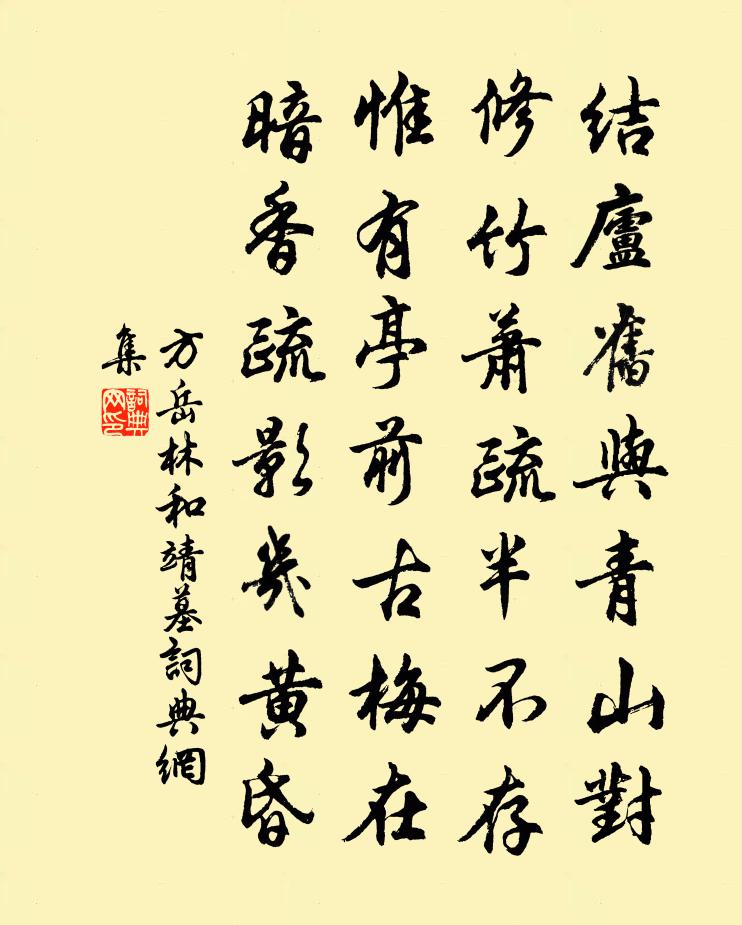 结廬舊與青山對
修竹蕭疏半不存
惟有亭前古梅在
暗香疏影幾黄昏
方岳林和靖墓詞典網
集
詞典
网印